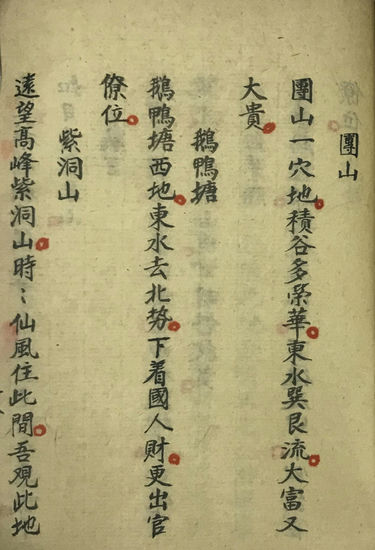 團山
團山一穴地積谷多榮華東水巽艮流大富又
大貴
鵝鴨塘
鵝鴨塘西地東水去北势下着國人財更出官
僚位
紫洞山
遠望高峰紫洞山時〻仙風住此間吾观此地